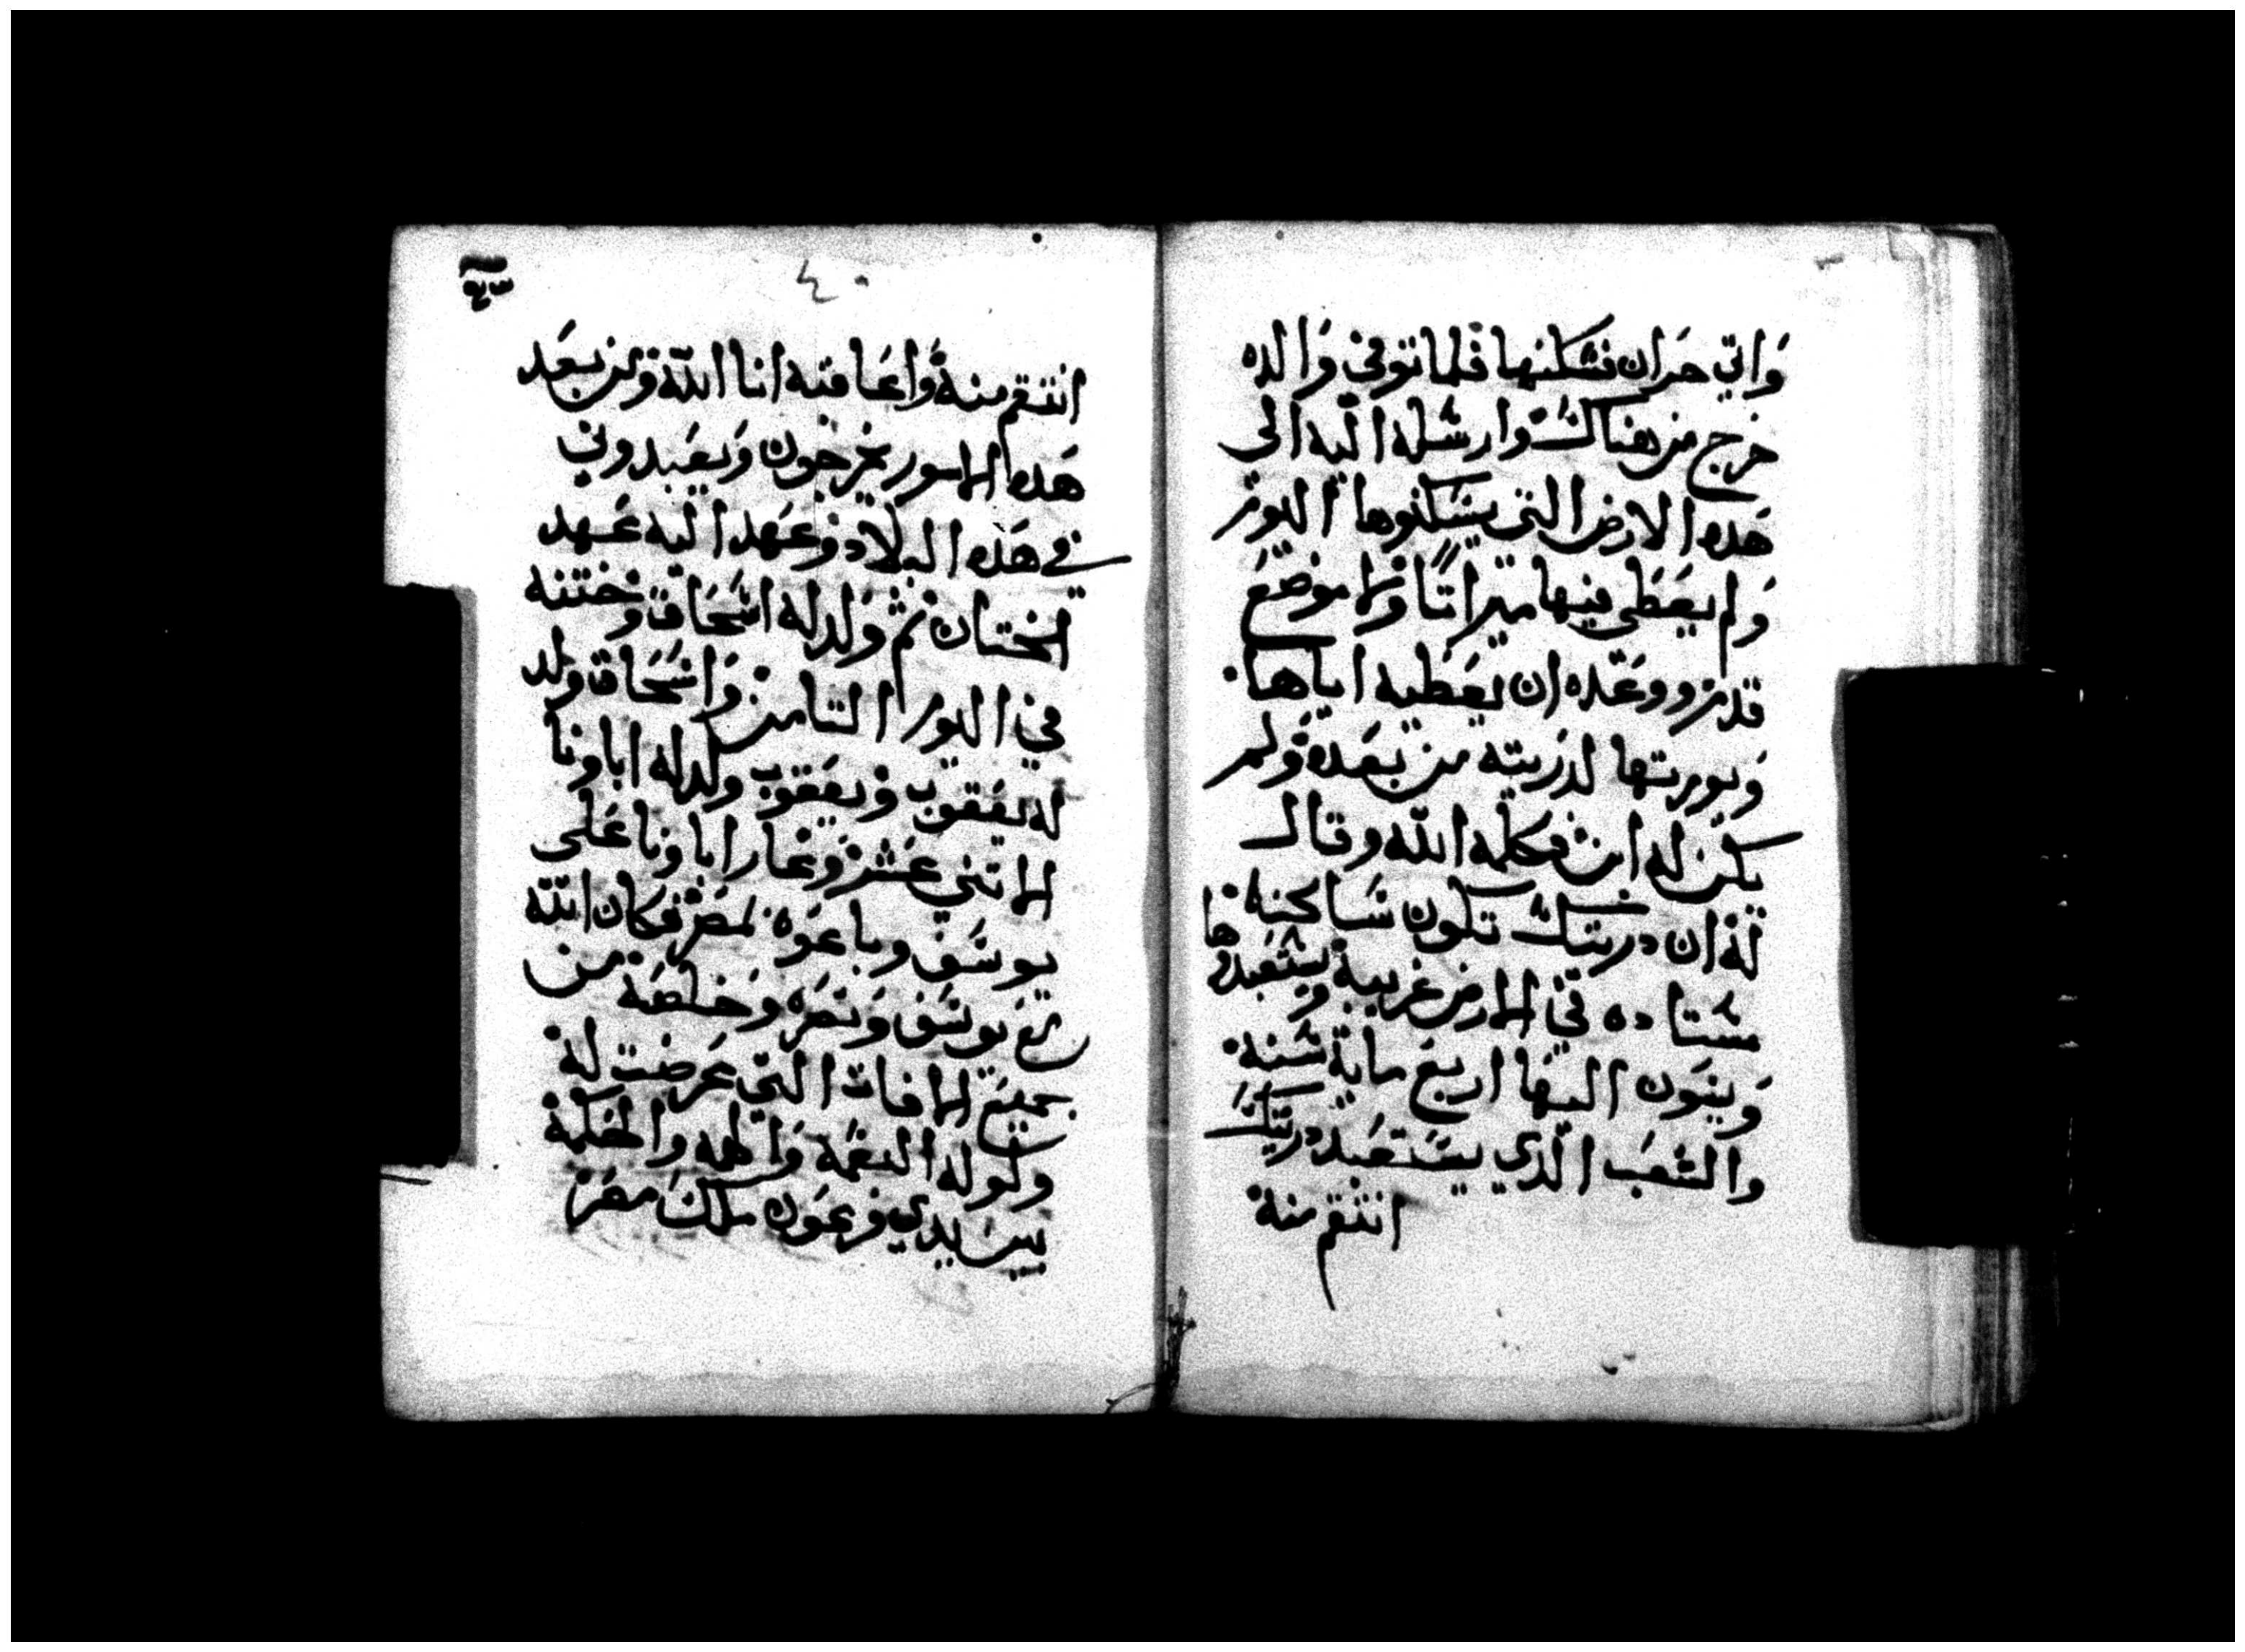 واتي حران فسكنها فلما توفي والده
خرج من هناك وارسله اليه الى
هذه الارض التي يسكنوها اليوم
ولم يعطى فيها ميراتا ولا موضع
قدم ووعده ان يعطيه اياها
ويورتها لدريته من بعده ولم
يكن له ابن فكلمه الله وقال
له ان دريتك تكون ساكنة
في الارض غريبة ويستعبدوها
ويتون اليها اربع ماية سنة
والشعب الذي يستعبد دريتك
انتقم منه
٤٠
انتقم منه واعاقبه انا الله ومن بعد
هده الامور يخرجون ويعبدوني
في هذه البلاد وعهد اليه عهد
الختان ثم ولد له اسحاق وختنه
في اليوم التامن واسحاق ولد
له يعقوب ويعقوب ولد له اباونا
الاتني عشر وغار اباونا على
يوسف وباعوه لمصر فكان الله
مع يوسف ونصره وخلصه من
جميع الافات التي عرضت له
وخوله النعمة والحكمة
بين يدي فرعون ملك مصر